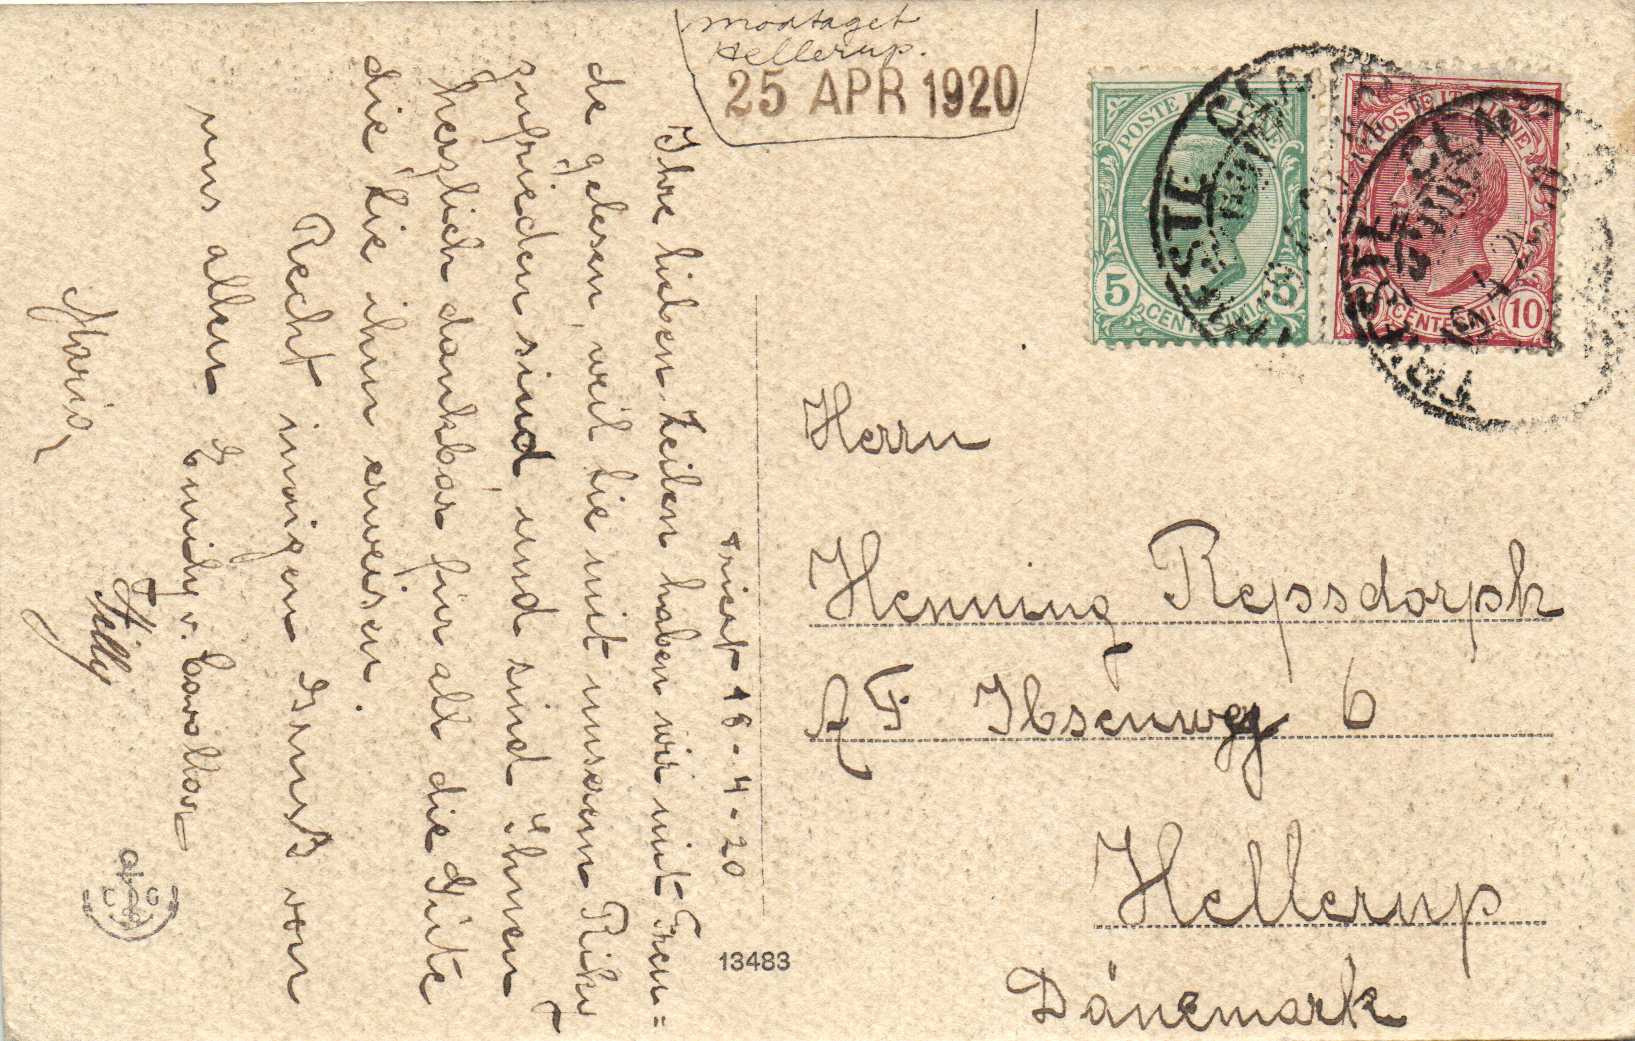 modtaget
Hellerup.
25 APR 1920
POSTE ITALIANE
5
CENTESIMI
5
POSTE ITALIANE
CENTESIMI 10
Triest 18-4-20
Ihre lieben Zeilen haben wir mit Freu=
de gelesen, weil Sie mit unserem
zufrieden sind und sind Ihnen
herzlich dankbar für all die Güte
die Sie ihm erweisen.
Recht innigen Gruß von
uns allen Emily v.
Maria,
Herrn
Henning Rejssdorph
AF Ibsenweg 6
Hellerup
Dänemark
13483